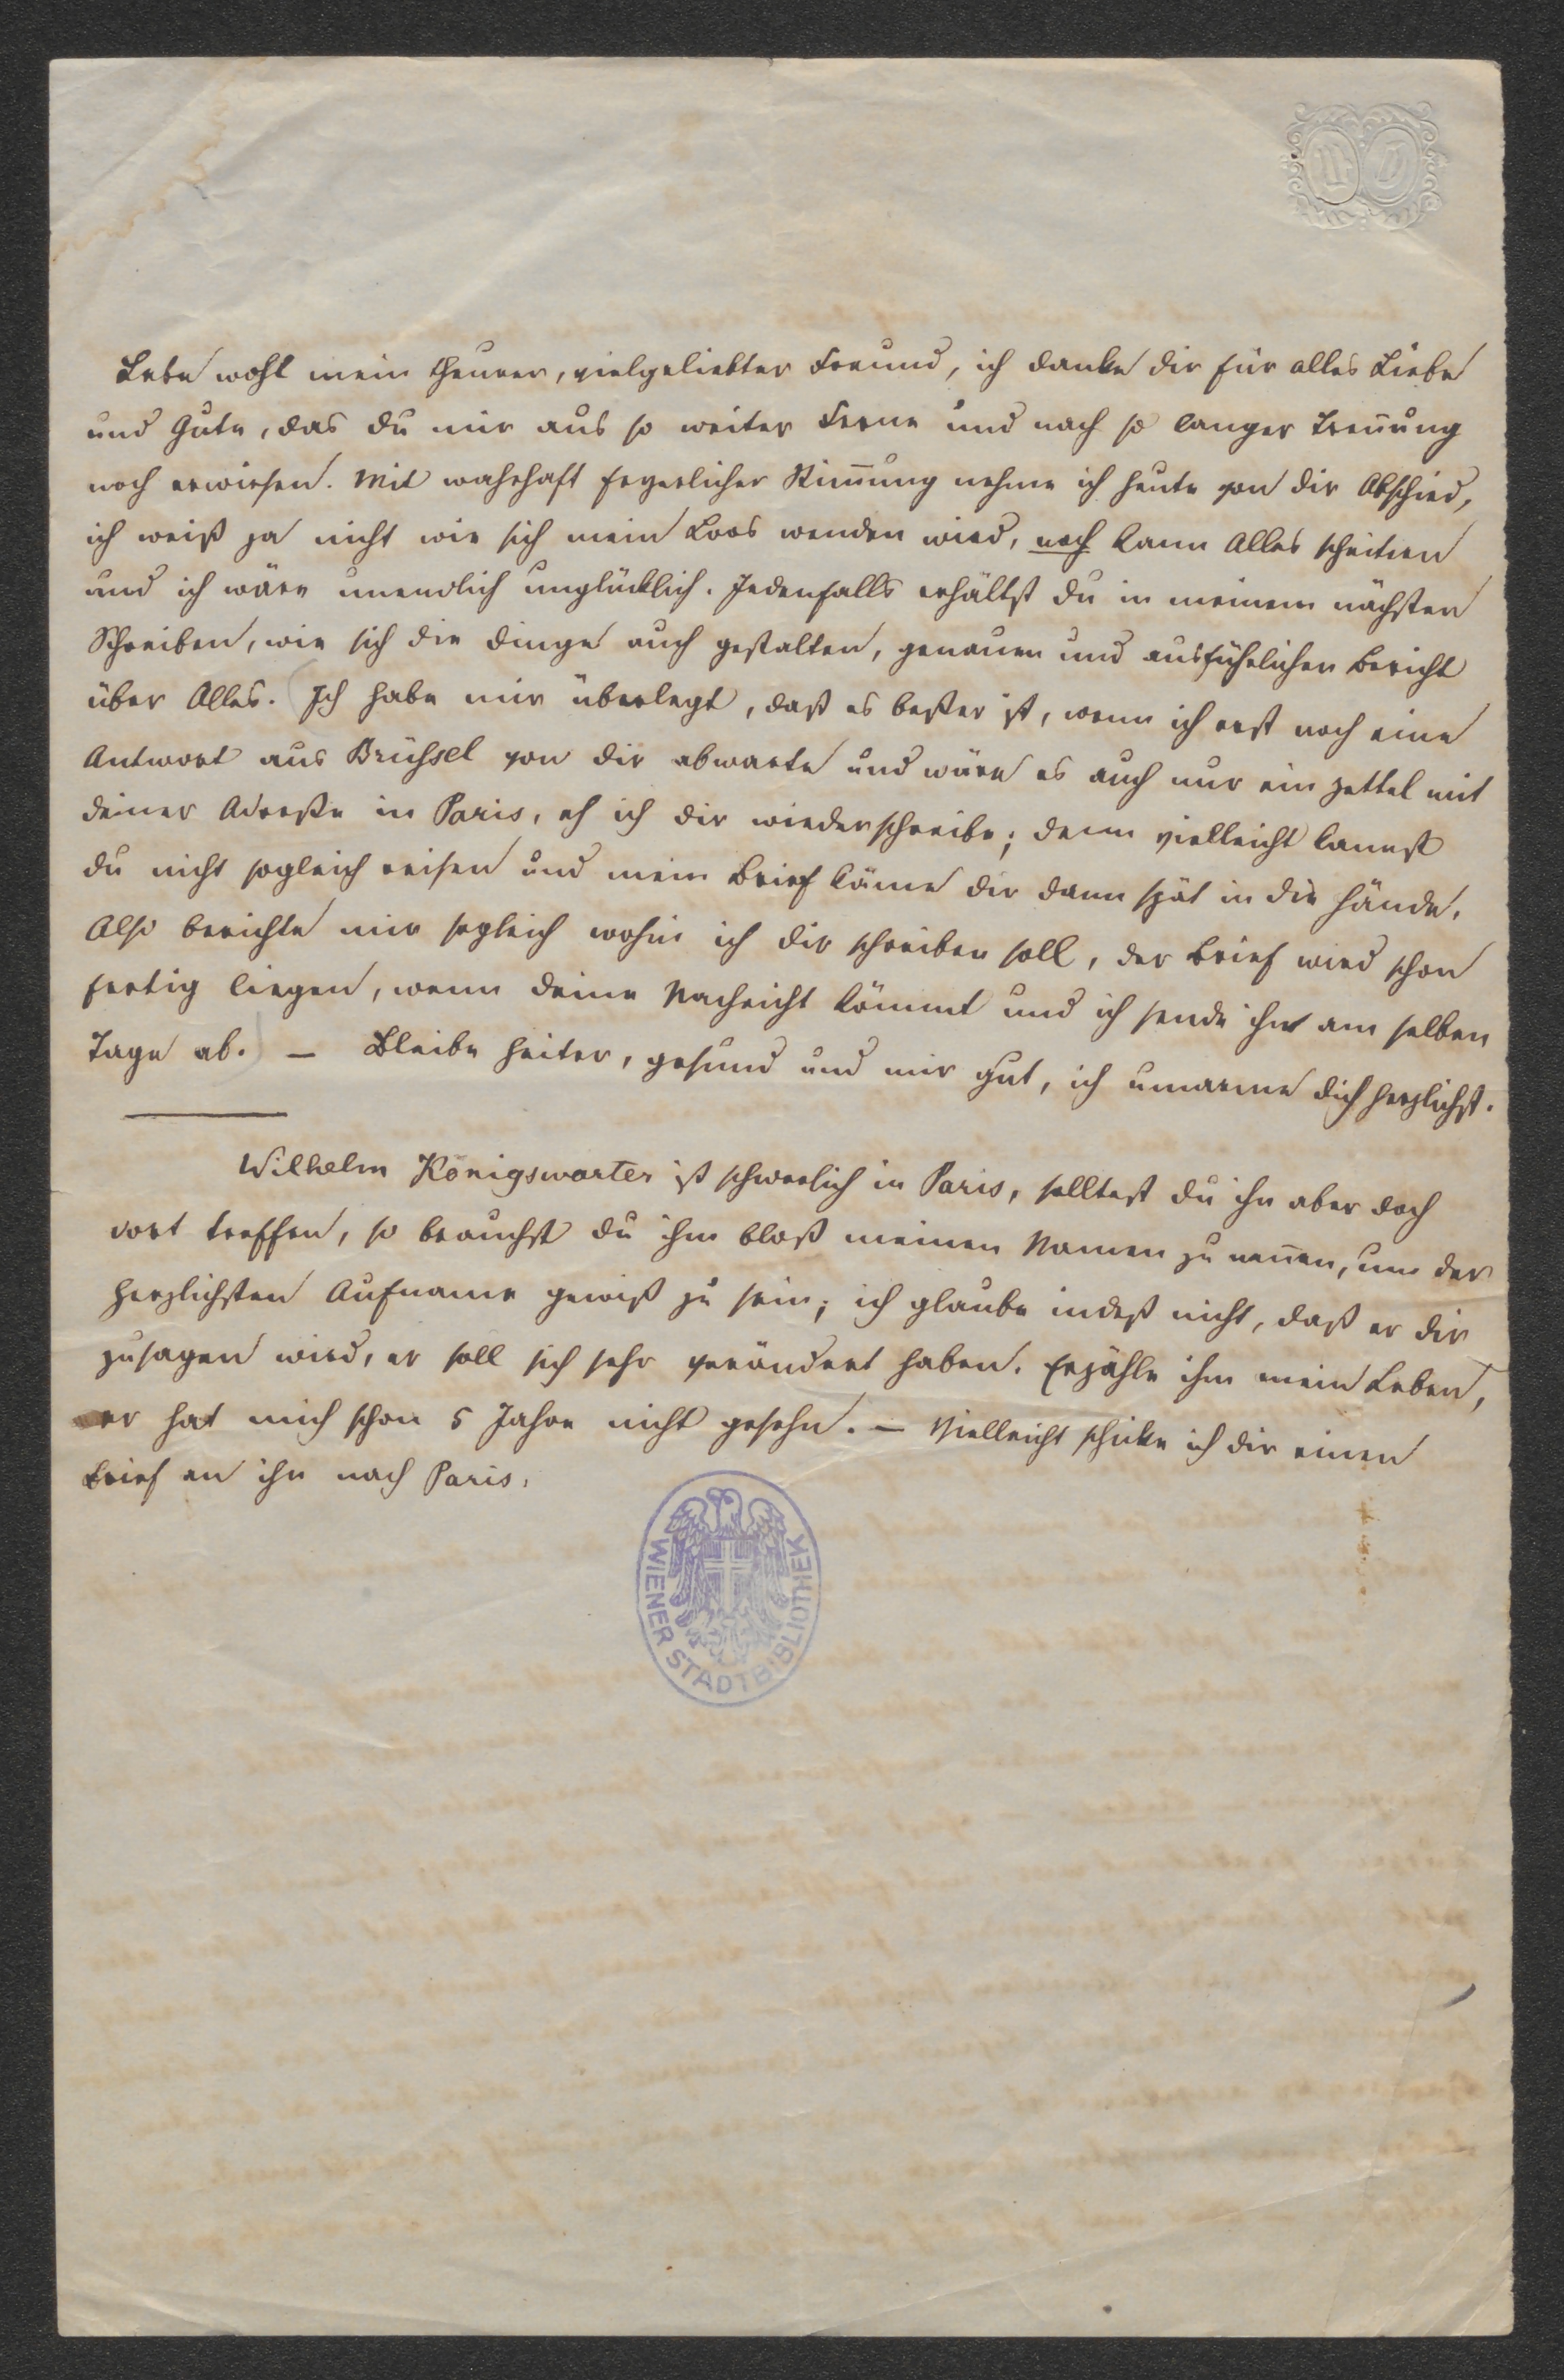 Lebe wohl mein theurer, vielgeliebter Freund, ich danke dir für alles Liebe
und Gute, das du mir aus so weiter Ferne und nach so langer Treñung
noch erwiesen. Mit wahrhaft feyerlicher Stim̄ung nehme ich heute von dir Abschied,
ich weiß ja nicht wie sich mein Loos wenden wird, noch kann Alles scheitern
und ich wäre unendlich unglücklich. Jedenfalls erhältst du in meinem nächsten
Schreiben, wie sich die Dinge auch gestalten, genauen und ausführlichen Bericht
über Alles. (Ich habe mir überlegt, daß es beßer ist, wenn ich erst noch eine
Antwort aus Brüssel von dir abwarte und wäre es auch nur ein Zettel mit
deiner Adreße in Paris, eh ich dir wiederschreibe; denn vielleicht kannst
du nicht sogleich reisen und mein Brief käme dir dann spät in die Hände.
Also berichte mir sogleich wohin ich dir schreiben soll, der Brief wird schon
fertig liegen, wenn deine Nachricht kömmt und ich sende ihn am selben
Tage ab.) – Bleibe heiter, gesund und mir gut, ich umarme dich herzlichst.
Wilhelm Königswarter ist schwerlich in Paris, solltest du ihn aber doch
dort treffen, so brauchst du ihm bloß meinen Namen zu neñen, um der
herzlichsten Aufname gewiß zu sein; ich glaube indeß nicht, daß er dir
zusagen wird, er soll sich sehr verändert haben. Erzähle ihm mein Leben,
er hat mich schon 5 Jahre nicht gesehn. – Vielleicht schicke ich dir einen
Brief an ihn nach Paris.
WIENER STADTBIBLIOTHEK